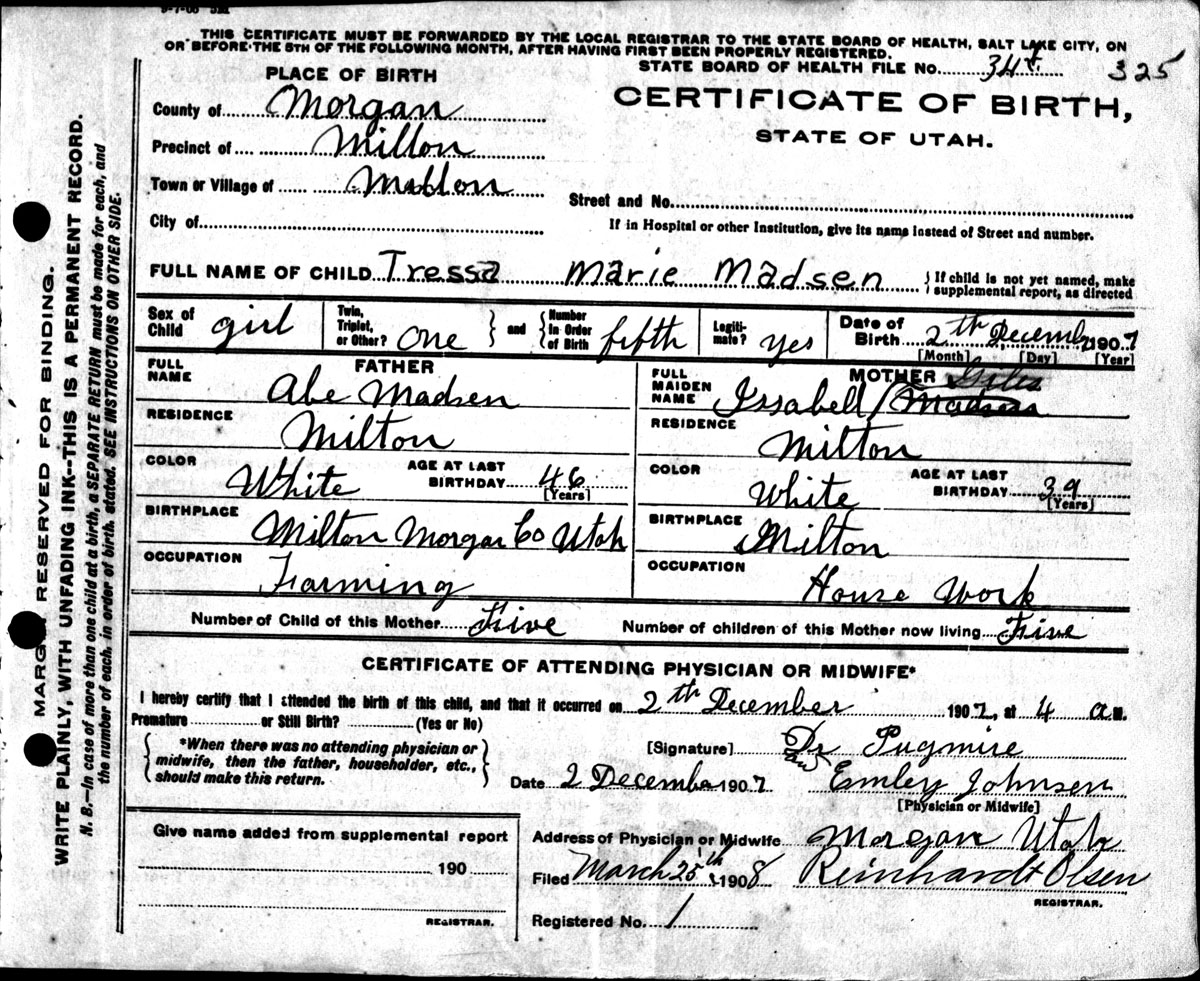 THIS CERTIFICATE MUST BE FORWARDED BY THE LOCAL REGISTRAR TO THE STATE BOARD OF HEALTH, SALT LAKE CITY, ON
OR BEFORE THE 5TH OF THE FOLLOWING MONTH, AFTER HAVING FIRST BEEN PROPERLY REGISTERED.
STATE BOARD OF HEALTH FILE No. 325
PLACE OF BIRTH
CERTIFICATE OF BIRTH,
STATE OF UTAH.
County of Morgan
Precinct of Milton
Town or Village of Milton
Street and No.
City of
If in Hospital or other Institution, give its name instead of Street and number.
FULL NAME OF CHILD Tressa Marie Madsen { If child is not yet named, make
supplemental report, as directed
Sex of Child girl Twin, Triplet, or Other? one } and { Number In Order of Birth fifth Legiti-mate? yes Date of Birth 2th December 1907
[Month] [Day] [Year]
FATHER
FULL NAME Abe Madsen
RESIDENCE Milton
COLOR White AGE AT LAST BIRTHDAY 46 [Years]
BIRTHPLACE Milton Morgan Co Utah
OCCUPATION Farming
MOTHER Giles
FULL MAIDEN NAME Issabell Madsen
RESIDENCE Milton
COLOR White AGE AT LAST BIRTHDAY 39 [Years]
BIRTHPLACE Milton
OCCUPATION House Work
Number of Child of this Mother Five Number of children of this Mother now living Five
CERTIFICATE OF ATTENDING PHYSICIAN OR MIDWIFE*
I hereby certify that I attended the birth of this child, and that it occurred on 2th December 1907, at 4 a M.
Premature or Still Birth? (Yes or No)
{ *When there was no attending physician or
midwife, then the father, householder, etc.,
should make this return. }
[Signature] Dr Pugmire
Date 2 December 1907 Emley Johnsen
[Physician or Midwife]
Give name added from supplemental report
190
REGISTRAR.
Address of Physician or Midwife Morgan Utah
Filed March 25th 1908 Reinhardt Olsen
REGISTRAR.
Registered No. 1
MARGIN RESERVED FOR BINDING.
WRITE PLAINLY, WITH UNFADING INK--THIS IS A PERMANENT RECORD.
N. B.--In case of more than one child at a birth, a SEPARATE RETURN must be made for each, and
the number of each, in order of birth, stated. SEE INSTRUCTIONS ON OTHER SIDE.